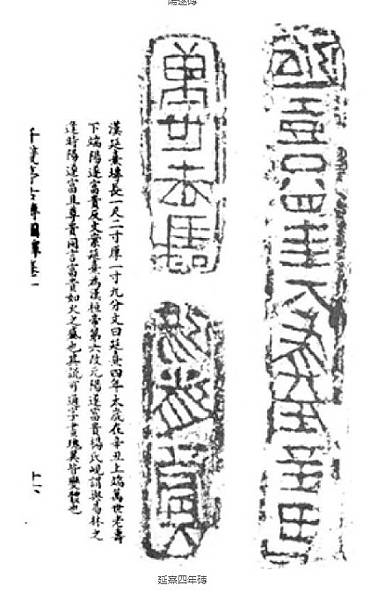 陽遂磚
延熹四年太歲在辛丑
萬世老壽
陽遂富貴
漢延熹塼長一尺二寸厚一寸九分文曰延熹四年太歲在辛丑上端萬世老壽
下端陽遂富貴反文案延熹為漢桓帝第六改元陽遂富貴楊氏峴謂與易林之
逢時陽遂富且尊貴同言富貴如火之盛也其說可通字畫瑰異皆變體也
千甓亭古塼圖釋卷一
延熹四年磚